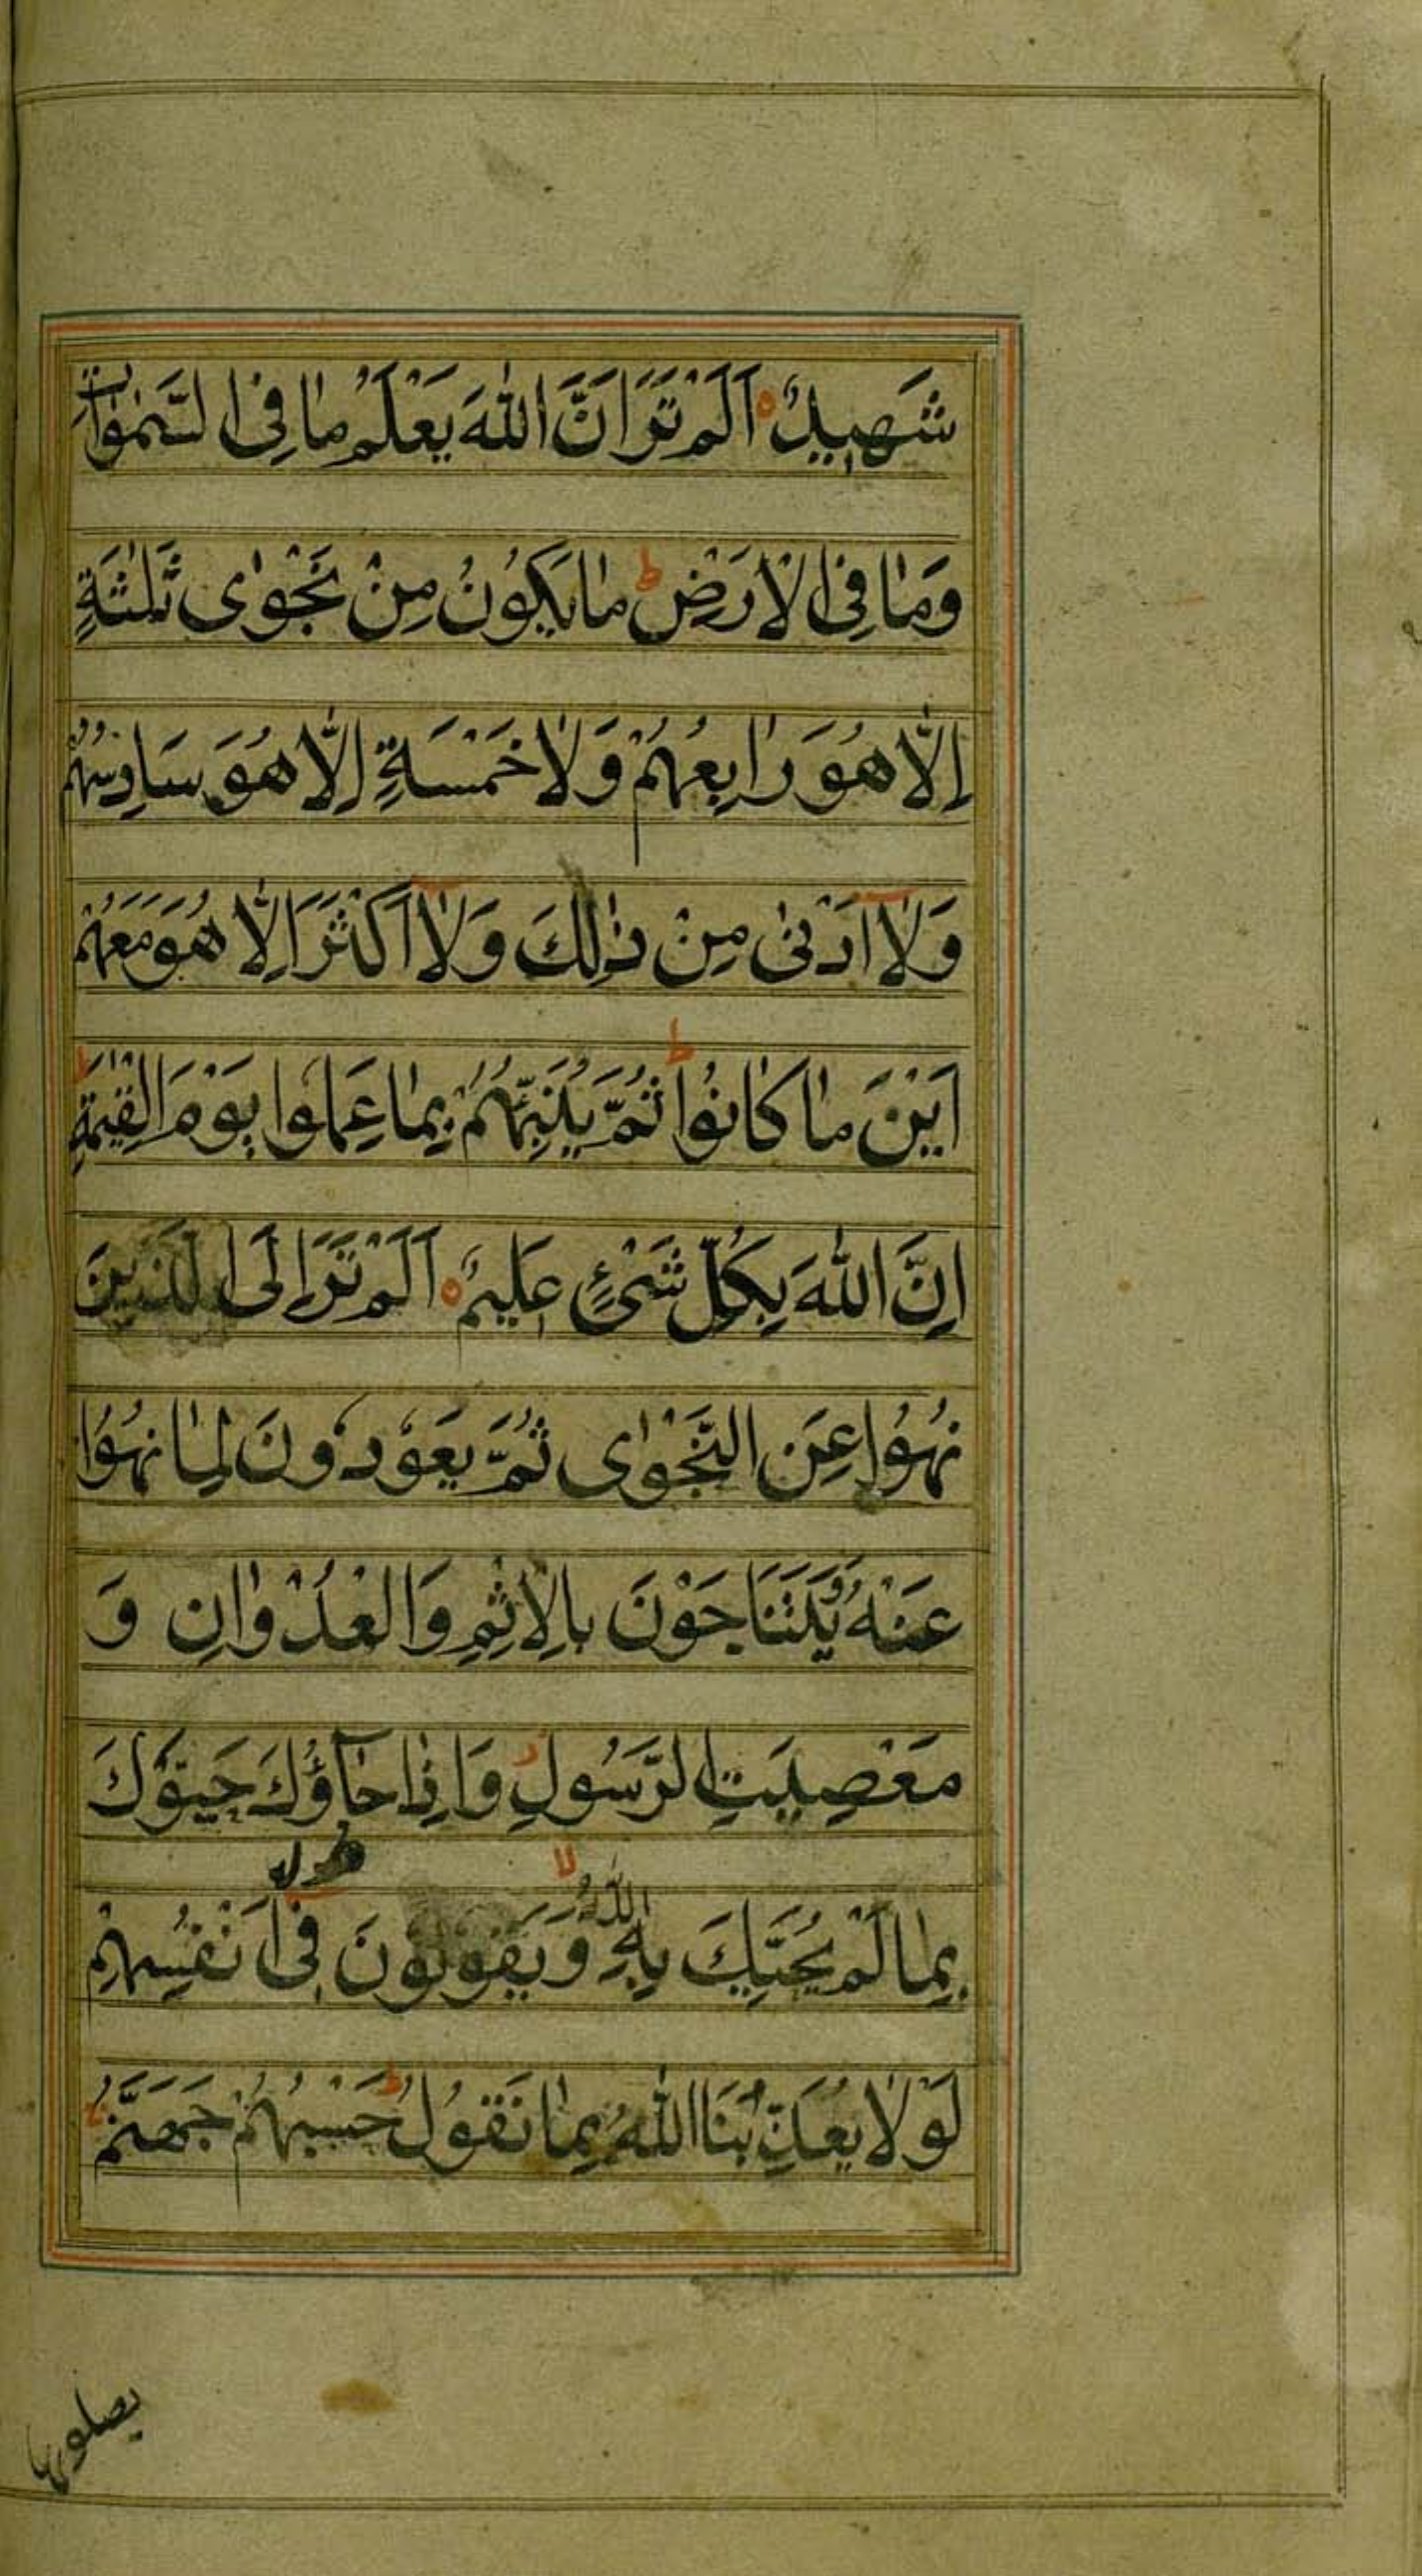 شَهِيدٌ اَلَمْ تَرَ اَنَّ اللّٰهَ يَعْلَمُ مَا فِى السَّمٰوٰاتِ
وَمَا فِى الْاَرْضِ ط مَا يَكُونُ مِنْ نَجْوٰى ثَلٰثَةٍ
اِلَّا هُوَ رَابِعُهُمْ وَلَا خَمْسَةٍ اِلَّا هُوَ سَادِسُهُمْ
وَلَآ اَدْنٰى مِنْ ذٰلِكَ وَلَآ اَكْثَرَ اِلَّا هُوَ مَعَهُمْ
اَيْنَ مَا كَانُوا ط ثُمَّ يُنَبِّئُهُمْ بِمَا عَمِلُوا يَوْمَ الْقِيٰمَةِ ط
اِنَّ اللّٰهَ بِكُلِّ شَىْءٍ عَلِيمٌ اَلَمْ تَرَ اِلَى الَّذِينَ
نُهُوا عَنِ النَّجْوٰى ثُمَّ يَعُودُونَ لِمَا نُهُوا
عَنْهُ وَيَتَنَاجَوْنَ بِالْاِثْمِ وَالْعُدْوَانِ وَ
مَعْصِيَتِ الرَّسُولِ وَاِذَا جَآؤُكَ حَيَّوْكَ
بِمَا لَمْ يُحَيِّكَ بِهِ اللّٰهُ لا وَيَقُولُونَ فِىٓ اَنْفُسِهِمْ
لَوْلَا يُعَذِّبُنَا اللّٰهُ بِمَا نَقُولُ ط حَسْبُهُمْ جَهَنَّمُ
يصلونها